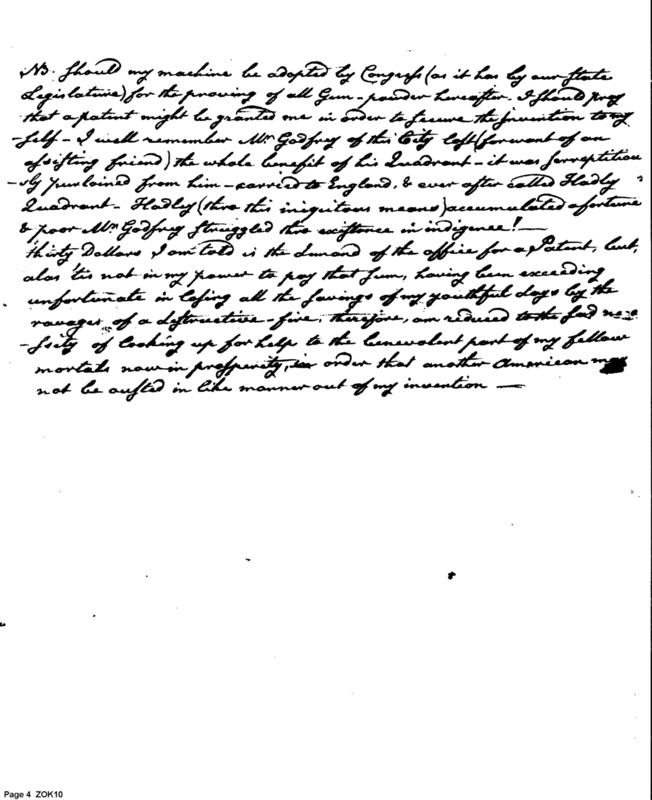 NB. Should my machine be adopted by Congress (as it has by our State
Legislature) for the proving of all Gun-powder hereafter. I should pray
that a patent might be granted me in order to secure the invention to my
-self - I well remember Mr. Godfrey of this City lost (for want of an
assisting friend) the whole benefit of his Quadrant - it was surreptitious
-ly purloined from him - carried to England, & ever after called Hadly's
Quadrant - Hadley (thro this iniquitous means) accumulated a fortune
& poor Mr. Godfrey struggled thro existence in indigence! —
Thirty Dollars I am told is the demand of the office for a Patent, but,
alas 'tis not in my power to pay that sum, having been exceeding
unfortunate in losing all the savings of my youthful days by the
ravages of a destructive-fire, therefore, am reduced to the sad nece
-ssity of looking up for help to the benevolent part of my fellow
mortals now in prosperity, in order that another American may
not be ousted in like manner out of my invention —
Page 4 ZOK10